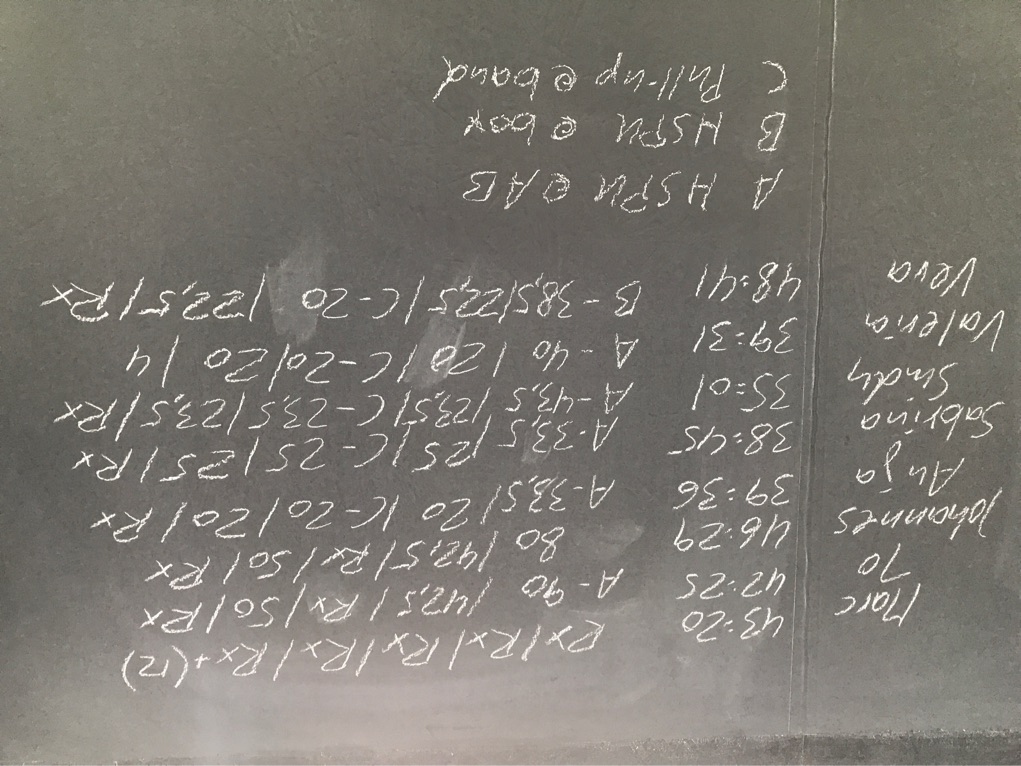 Marc 43:20 Rx/Rx/Rx/Rx/Rx+(12)
Jo 42:25 A-90 /42,5/Rx/50/Rx
Johannes 46:29 80 /42,5/Rx/50/Rx
Anja 39:36 A-33,5/20/C-20/20/Rx
Sabrina 38:45 A-33,5/25/C-25/25/Rx
Sindy 35:01 A-43,5/23,5/C-23,5/23,5/Rx
Valeria 39:31 A-40/20/C-20/20/4
Vera 48:41 B-38,5/22,5/C-20/22,5/Rx
A HSPU @ AB
B HSPU @ box
C Pull-up @ band